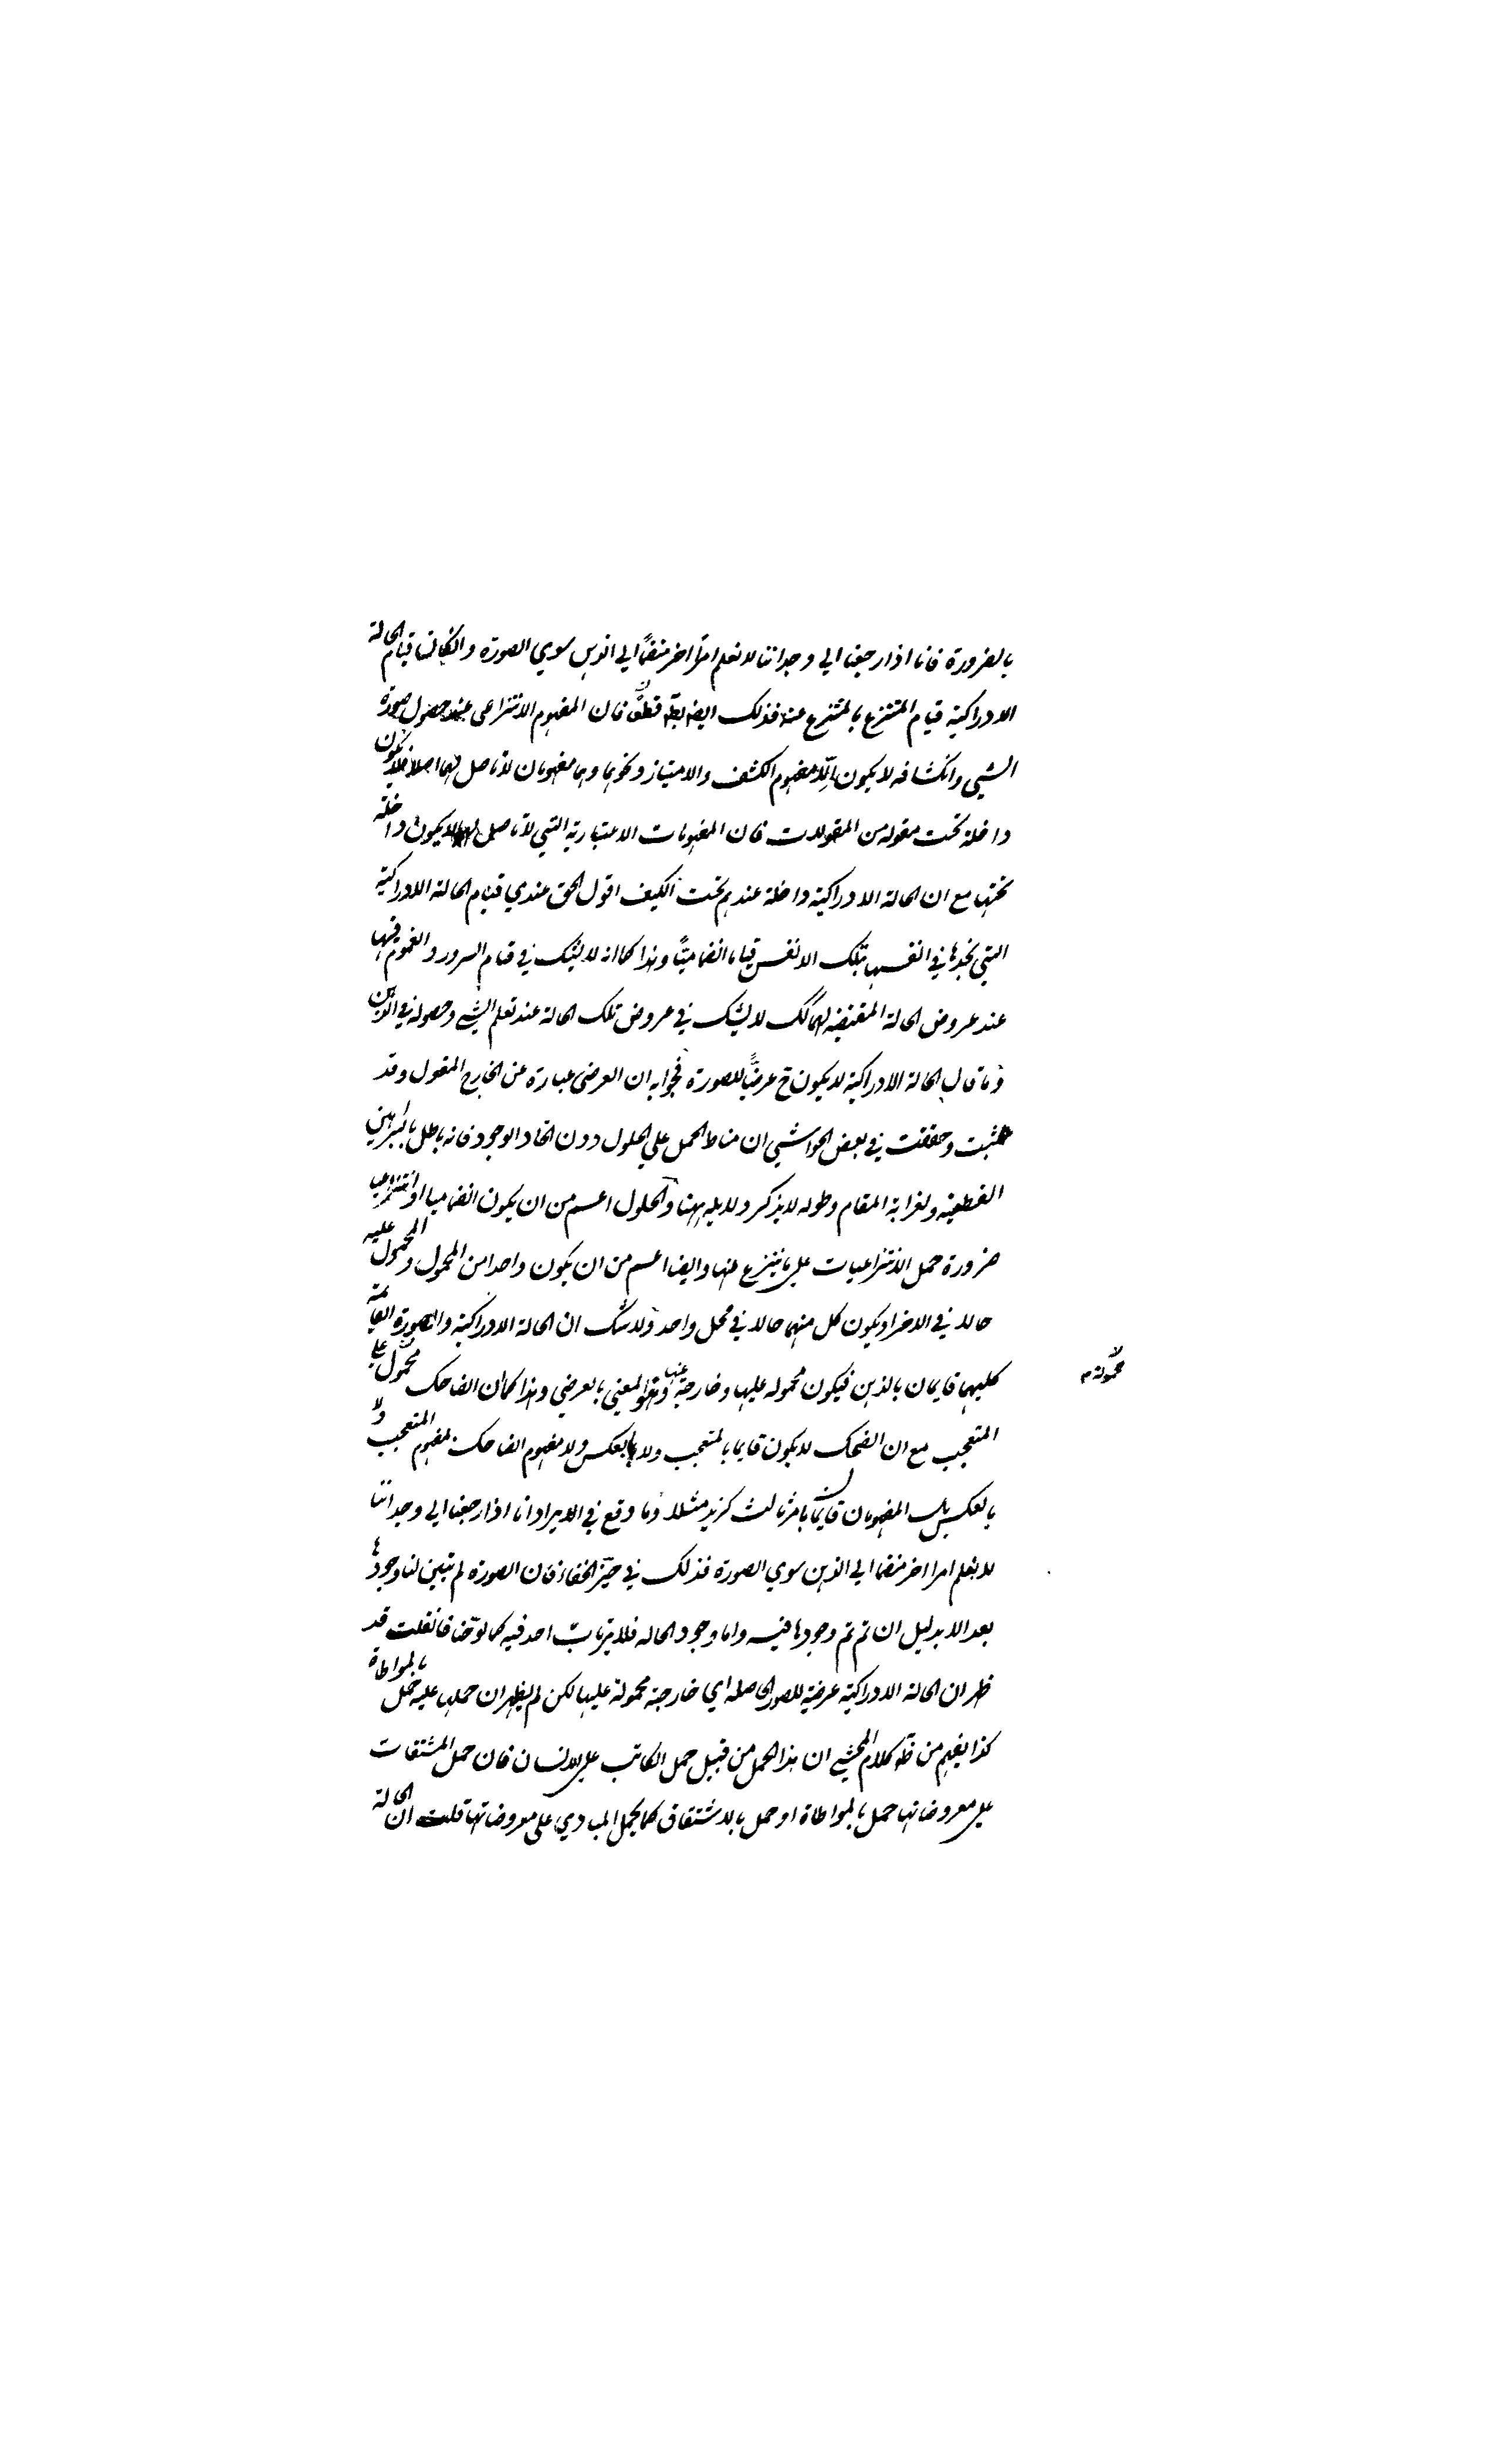 بالضرورة فانا اذا رجعنا الي وجداننا لا نعلم امرا اخر منضما الي الذهن سوي الصورة وان كانت قيام الحالة
الادراكية قيام المنتزع بالمنتزع عنه فذلك ايضا بط قطعا فان المفهوم الانتزاعي عند حصول صورة
الشيي وانكشافه لا يكون الا مفهوم الكشف والامتياز ونحوهما وهما مفهومان لا تاصل لهما اصلا فلا يكون
داخلة تحت مقولة من المقولات فان المفهومات الاعتبارية التي لا تاصل لها لا يكون داخلة
تحتها مع ان الحالة الادراكية داخلة عندهم تحت الكيف اقول الحق عندي قيام الحالة الادراكية
التي نجدها في انفسها بتلك الانفس قياما انضماميا وهذا كما انه لا يشك في قيام السرور والغموم فيها
عند عروض الحالة المقتضية لهما كك لا يشك في عروض تلك الحالة عند تعلم الشيي وحصوله في الذهن
وما قال الحالة الادراكية لا يكون ح عرضيا للصورة فجوابه ان العرضي عبارة عن الخارج المقول وقد
ثبت وحققت في بعض الحواشي ان مناط الحمل علي الحلول دون اتحاد الوجود فانه باطل بالبراهين
القطعية ولغرابة المقام وطوله لا يذكر دلايله ههنا والحلول اعم من ان يكون انضماميا او انتزاعيا
ضرورة حمل الانتزاعيات علي ما ينتزع عنها وايضا اعم من ان يكون واحدا من المحمول والمحمول عليه
حالا في الاخر او يكون كل منهما حالا في محل واحد ولا شك ان الحالة الادراكية والصورة العلمية
كليهما قايمان بالذهن فيكون محمولة عليها وخارجة عنها وهو المعني بالعرضي وهذا كما ان الضاحك محمول علي
المتعجب مع ان الضحك لا يكون قايما بالمتعجب ولا بالعكس ولا مفهوم الضاحك بمفهوم المتعجب ولا
بالعكس بل المفهومان قايمان بامر ثالث كزيد مثلا وما وقع في الايراد انا اذا رجعنا الي وجداننا
لا نعلم امرا اخر منضما الي الذهن سوي الصورة فذلك في حيز الخفاء فان الصورة لم تبين لنا وجودها
بعد الا بدليل ان تم تم وجودها فيه واما وجود الحالة فلا يرتاب احد فيه كما لوحنا فان قلت قد
ظهر ان الحالة الادراكية عرضية للصور الحاصلة اي خارجة محمولة عليها لكن لم يظهر ان حملها عليه حمل بالمواطاة
كذا يفهم من ظ كلام المحشي ان هذا الحمل من قبيل حمل الكاتب علي الانسان فان حمل المشتقات
علي معروضاتها حمل بالمواطاة او حمل بالاشتقاق كما يحمل المبادي علي معروضاتها قلت ان الحالة
محمولة